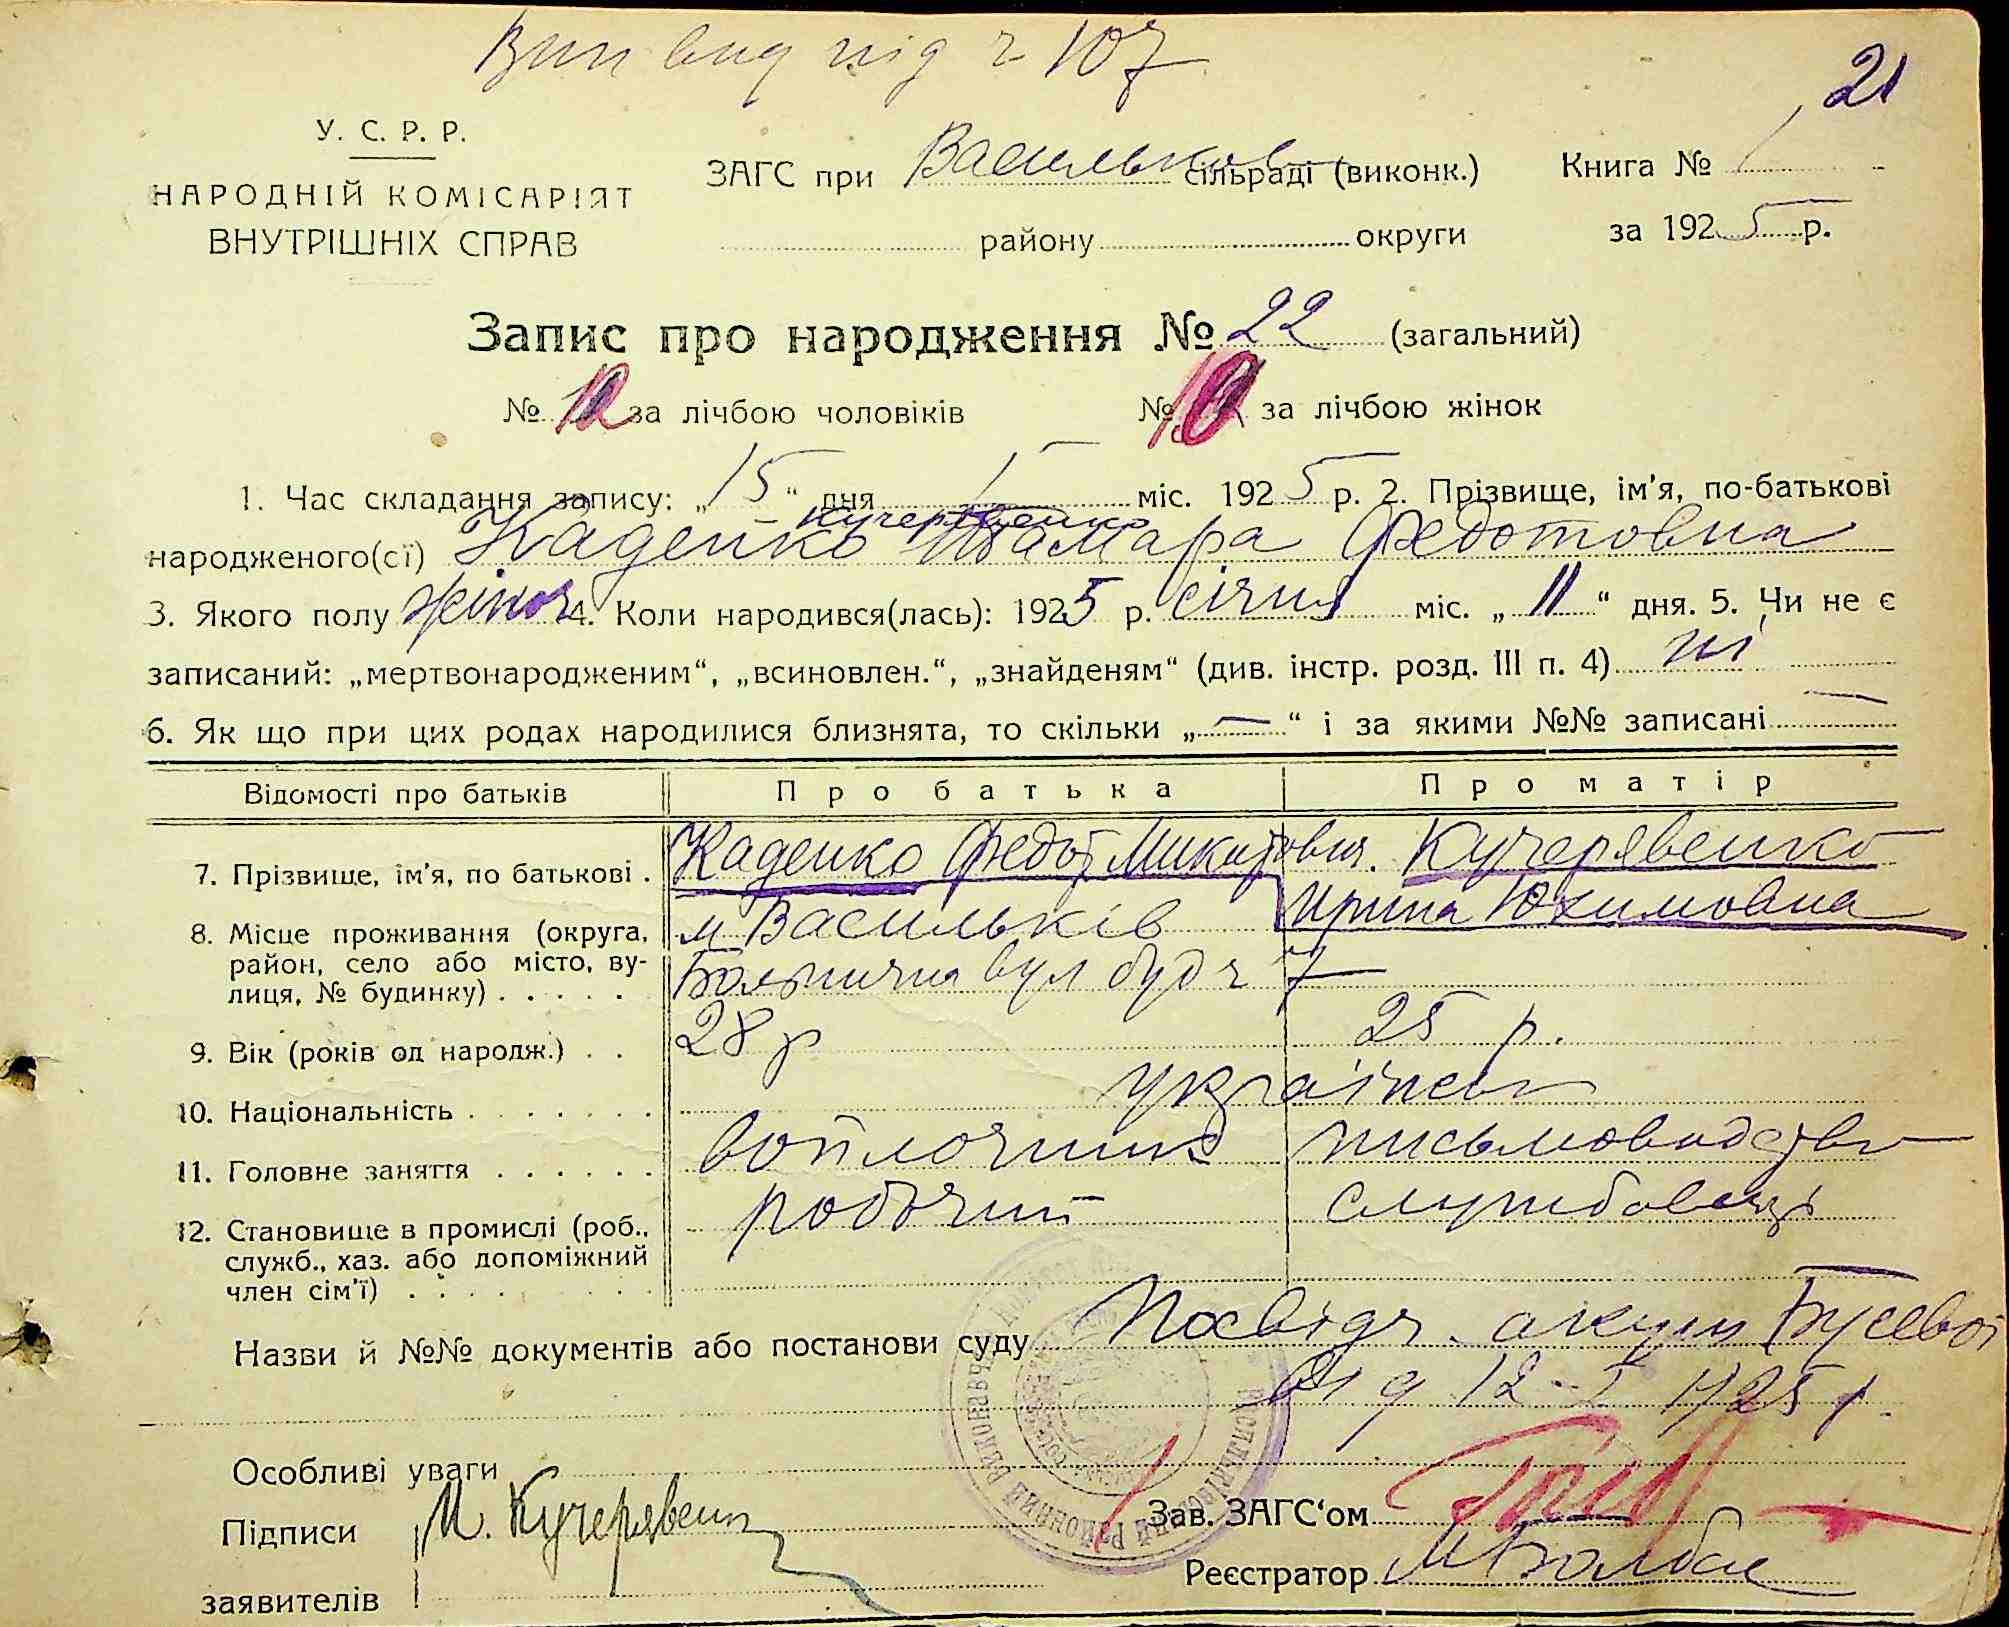 Вип вид під ч 107
21
У. С. Р. Р.
НАРОДНІЙ КОМІСАРІЯТ
ВНУТРІШНІХ СПРАВ
ЗАГС при Васильків сільраді (виконк.)
району округи
Книга № 1
за 1925 р.
Запис про народження № 22 (загальний)
№ за лічбою чоловіків № 10 за лічбою жінок
1. Час складання запису: „15“ дня 1 міс. 1925 р. 2. Прізвище, ім'я, по-батькові
Кучерявенко
народженого(сї) Каденко Тамара Федотовна
3. Якого полу жіноч 4. Коли народився(лась): 1925 р. січня міс. „11“ дня. 5. Чи не є
записаний: „мертвонародженим“, „всиновлен.“, „знайденям“ (див. інстр. розд. III п. 4) ні
6. Як що при цих родах народилися близнята, то скільки „—“ і за якими №№ записані —
Відомості про батьків Про батька Про матір
7. Прізвище, ім'я, по батькові . Каденко Федот Микитович. Кучерявенко
Ирина Юхимовна
8. Місце проживання (округа, район, село або місто, вулиця, № будинку) . . . . . м Васильків
Больнична вул буд ч 7
9. Вік (років од народж.) . . 28 р 25 р.
10. Національність . . . . . . . українськ
11. Головне заняття . . . . . . войлочник письмоводство
12. Становище в промислі (роб., служб., хаз. або допоміжний член сім'ї) . . . . робочий службовець
Назви й №№ документів або постанови суду Посвідч. акуш Бусевої
від 12-I 1925 р.
Особливі уваги
Підписи заявителів И. Кучерявенко
Зав. ЗАГС‘ом
Реєстратор